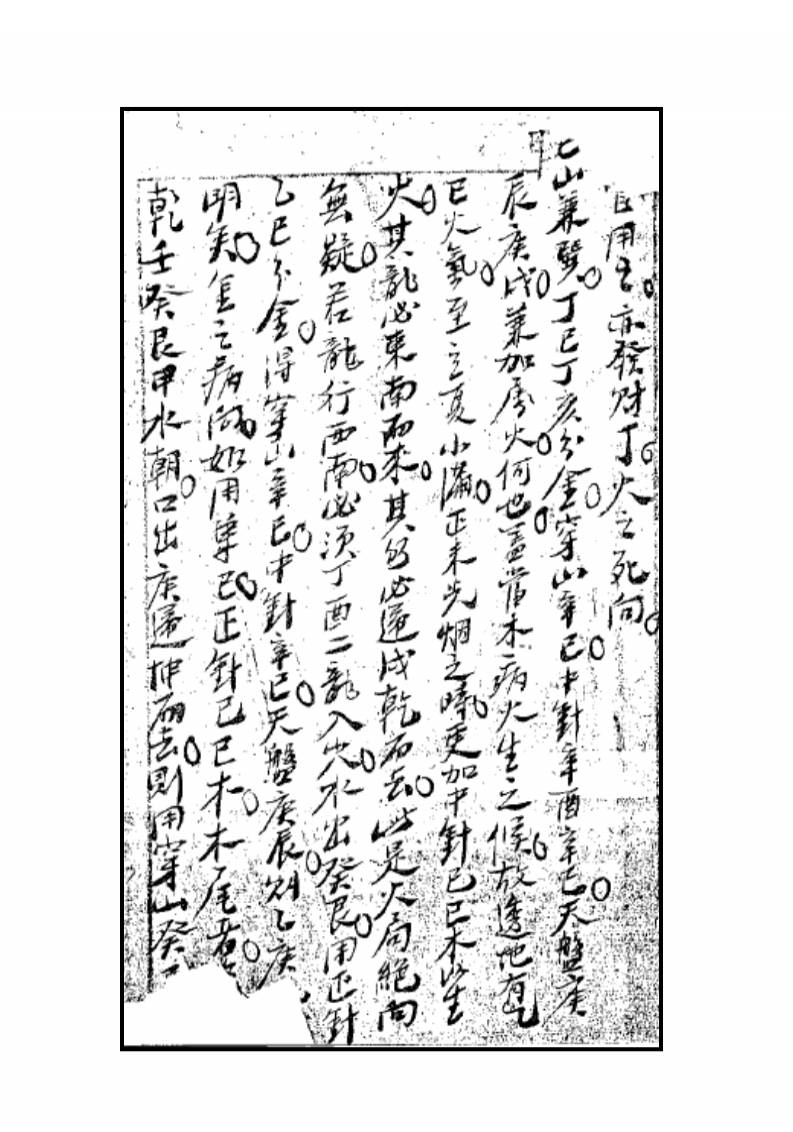 用之。亦發财丁。火之死向。
巳山兼巽。丁巳丁亥分金。穿山辛巳。中針辛酉辛巳。天盤庚
辰庚戌。兼加層火。何也。盖當木病火生之候。故透地有乙
巳火氣。至立夏小滿。正未光烟之時。更加中針己巳木以生
火。其龍必東南而來。其水必還戌乾而去。此是火局絕向
無疑。若龍行西南。必须丁酉二龍入穴。水出癸艮。用正針
乙巳分金。得穿山辛巳。中針辛巳。天盤庚辰。则乙庚
明矣。金之病向。如用單巳。正針己巳木。木尾
乾壬癸艮甲水朝。口出庚還坤而去。則用穿山癸